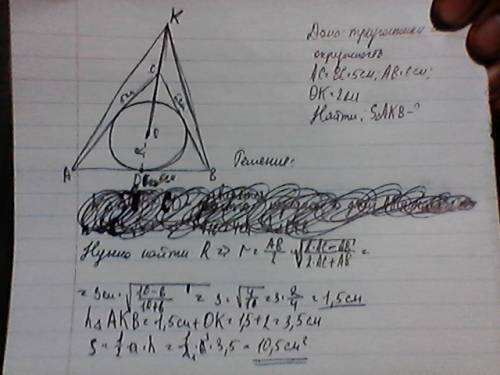 K
C
5см
5см
O
A
D
B
Дано: треугольник
окружность
AC=BC=5см, AB=6см;
OK=2см
Найти: SΔAKB-?
Решение:
Нужно найти R ⇒ r = AB/2 · √(2·AC-AB / 2·AC+AB) =
= 3см · √(10-6 / 10+6) = 3 · √(4/16) = 3 · 2/4 = 1,5см
hΔAKB = 1,5см + OK = 1,5+2 = 3,5см
S = 1/2 · a · h = 1/2 · 6 · 3,5 = 10,5см²